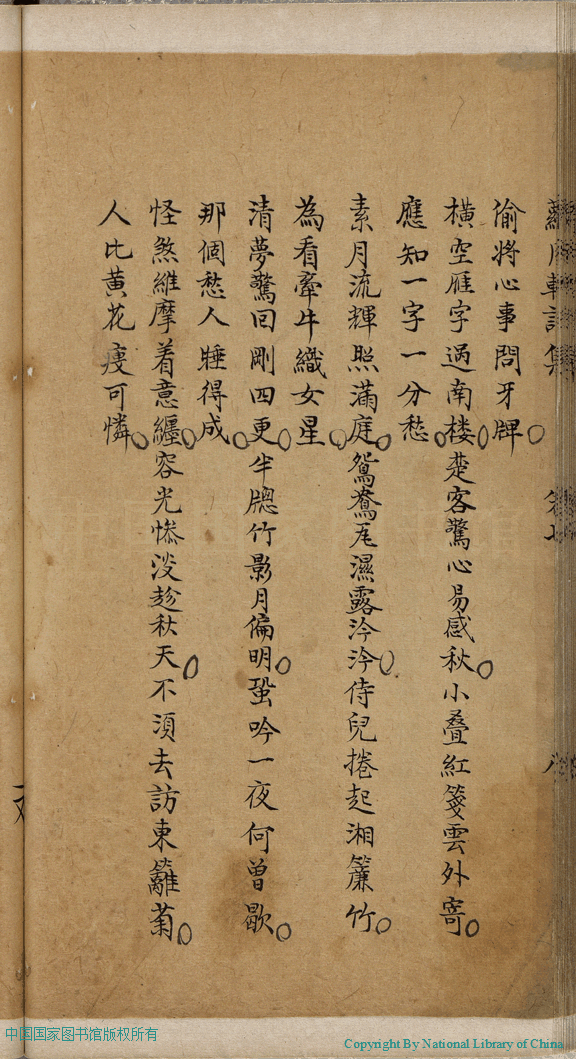 偷將心事問牙牌。
橫空雁字過南楼。楚客驚心易感秋。小疊紅箋雲外寄。
應知一字一分愁。
素月流輝照滿庭。鴛鴦瓦濕露泠泠。侍兒捲起湘簾竹。
為看牽牛織女星。
清夢驚回剛四更。半牕竹影月偏明。蛩吟一夜何曾歇。
那個愁人睡得成。
怪煞維摩着意纏。容光慘淡趁秋天。不須去訪東籬菊。
人比黃花瘦可憐。
中国国家图书馆版权所有
Copyright By National Library of China